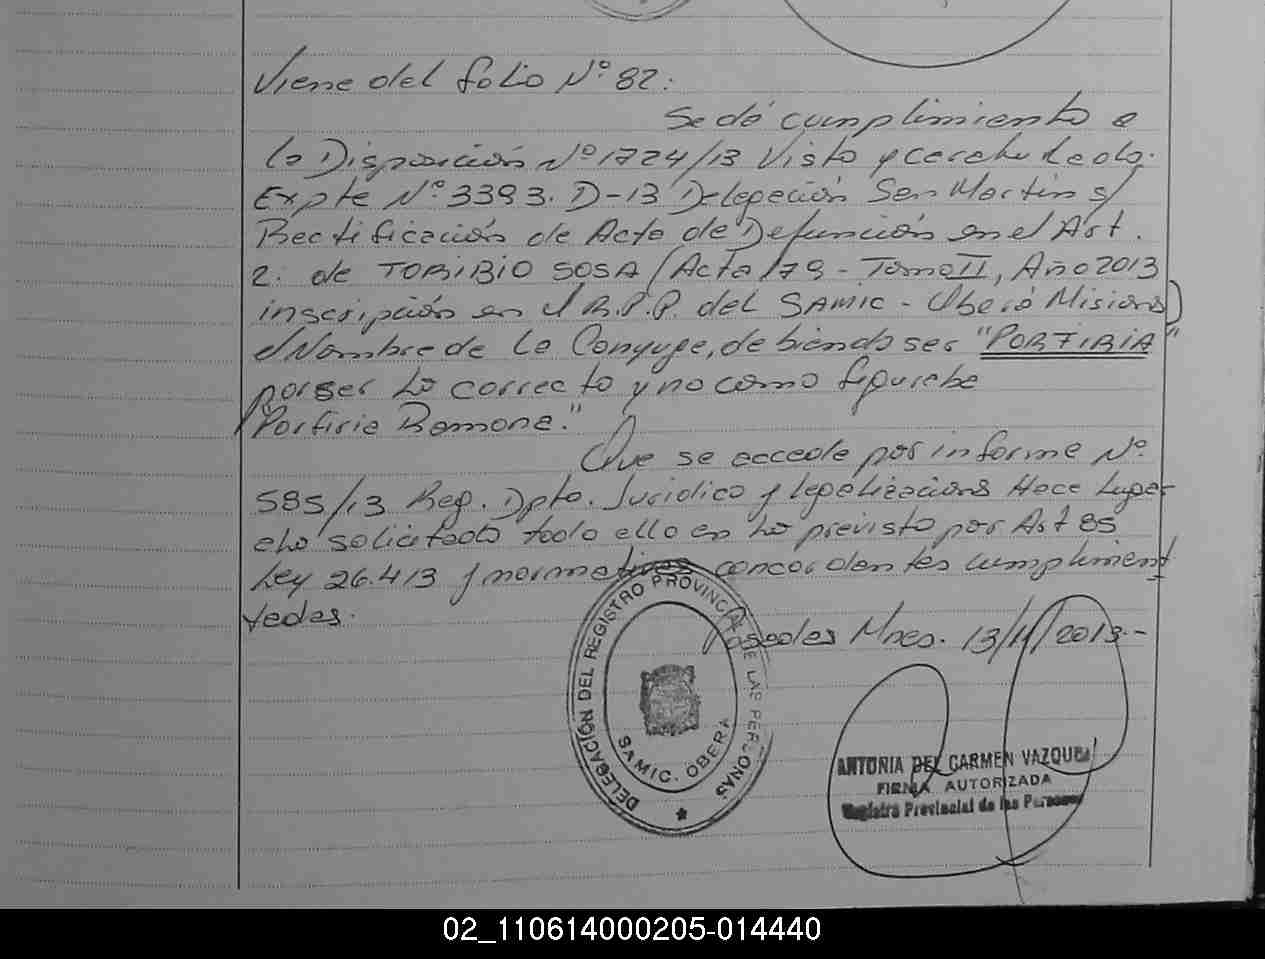 Viene del folio Nº 82:
Se dá cumplimiento a
la Disposición Nº 1724/13 Visto y
Expte Nº 3393. D-13 Delegación San Martin s/
Rectificación de Acta de Defunción en el Art.
2: de TORIBIO SOSA (Acta 179 - Tomo II, Año 2013
inscripción en el R.P.P. del SAMIC - Oberá Misiones)
el Nombre de la Conyuge, debiendo ser "PORFIRIA"
por ser lo correcto y no como figuraba
Porfiria Ramona."
Que se accede por informe Nº
585/13 Reg. Dpto. Juridico y legalizaciones Hace lugar
a lo solicitado todo ello en lo previsto por Art 85
Ley 26.413 y normativas concordantes cumpliment
tadas.
Posadas Mnes. 13/11/2013.-
DELEGACIÓN DEL REGISTRO PROVINCIAL DE LAS PERSONAS
SAMIC. OBERA
ANTONIA DEL CARMEN VAZQUEZ
FIRMA AUTORIZADA
Registro Provincial de las Personas
02_110614000205-014440